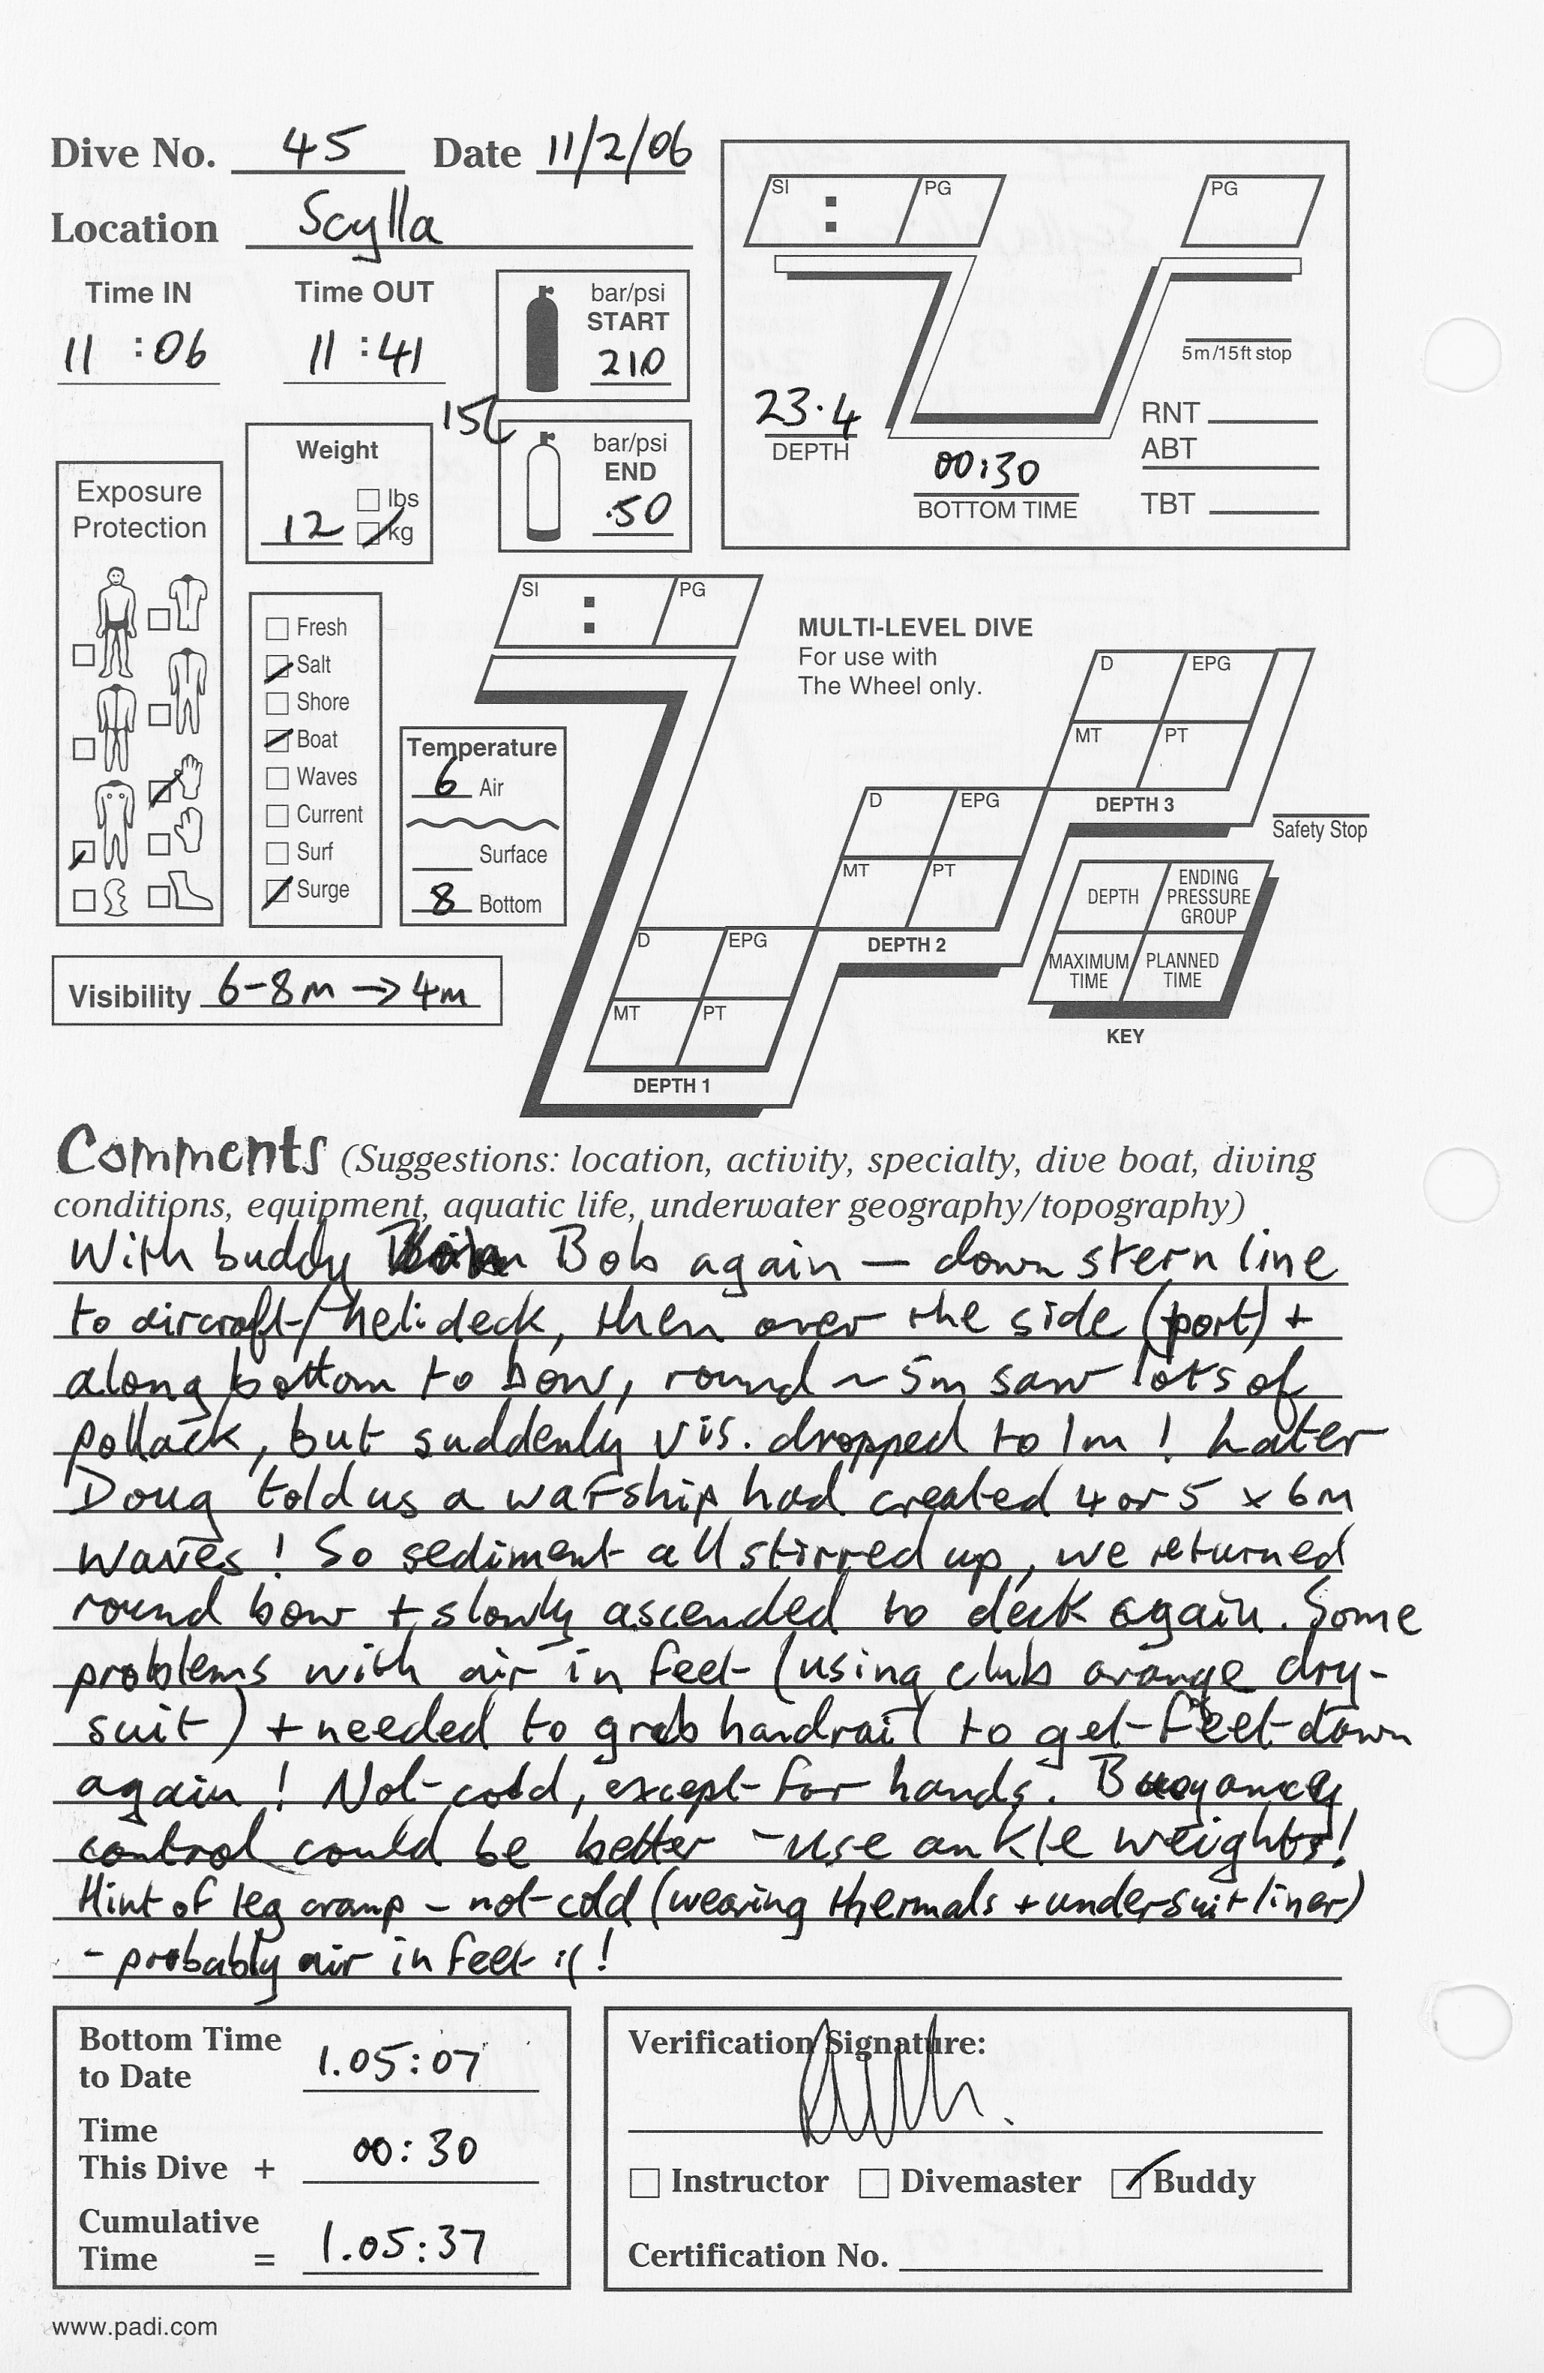 Dive No. 45 Date 11/2/06
Location Scylla
Time IN Time OUT
11 : 06 11 : 41
bar/psi
START
210
15L
bar/psi
END
50
Weight
lbs
12 kg
Exposure
Protection
Fresh
Salt
Shore
Boat
Waves
Current
Surf
Surge
Temperature
6 Air
Surface
8 Bottom
Visibility 6-8m → 4m
SI : PG
PG
5m/15ft stop
23.4
DEPTH
00:30
BOTTOM TIME
RNT
ABT
TBT
SI : PG
MULTI-LEVEL DIVE
For use with
The Wheel only.
D EPG
MT PT
DEPTH 3
D EPG
MT PT
DEPTH 2
D EPG
MT PT
DEPTH 1
Safety Stop
DEPTH
ENDING
PRESSURE
GROUP
MAXIMUM
TIME
PLANNED
TIME
KEY
Comments (Suggestions: location, activity, specialty, dive boat, diving
conditions, equipment, aquatic life, underwater geography/topography)
With buddy Bob again – down stern line
to aircraft/helideck, then over the side (port) +
along bottom to bow, round ~ 5m saw lots of
pollack, but suddenly vis. dropped to 1m ! Later
Doug told us a warship had created 4 or 5 x 6m
waves ! So sediment all stirred up, we returned
round bow + slowly ascended to deck again. Some
problems with air in feet (using club orange dry-
suit) + needed to grab handrail to get feet down
again ! Not cold, except for hands. Buoyancy
control could be better – use ankle weights!
Hint of leg cramp – not cold (wearing thermals + undersuit liner)
– probably air in feet :( !
Bottom Time
to Date 1.05:07
Time
This Dive + 00:30
Cumulative
Time = 1.05:37
Verification Signature:
Instructor Divemaster Buddy
Certification No.
www.padi.com